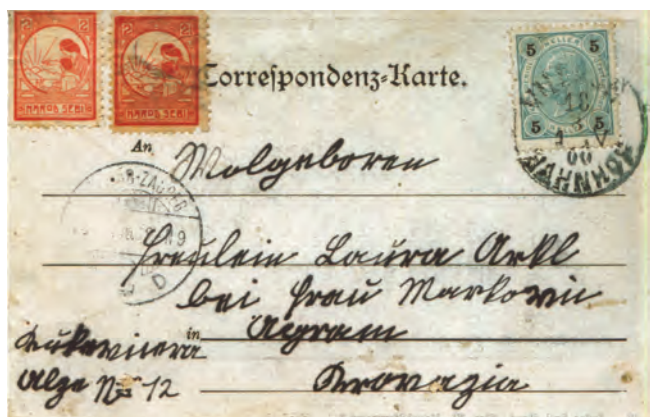 2 2
NAROD SEBI NAROD SEBI
Correspondenz-Karte.
5 5
5 5
18
00
An
Wolgeboren
ZAGREB
9
D
Freulein Laura Arkl
bei Frau Markovic
in
Agram
Alge No 12
Krovazia